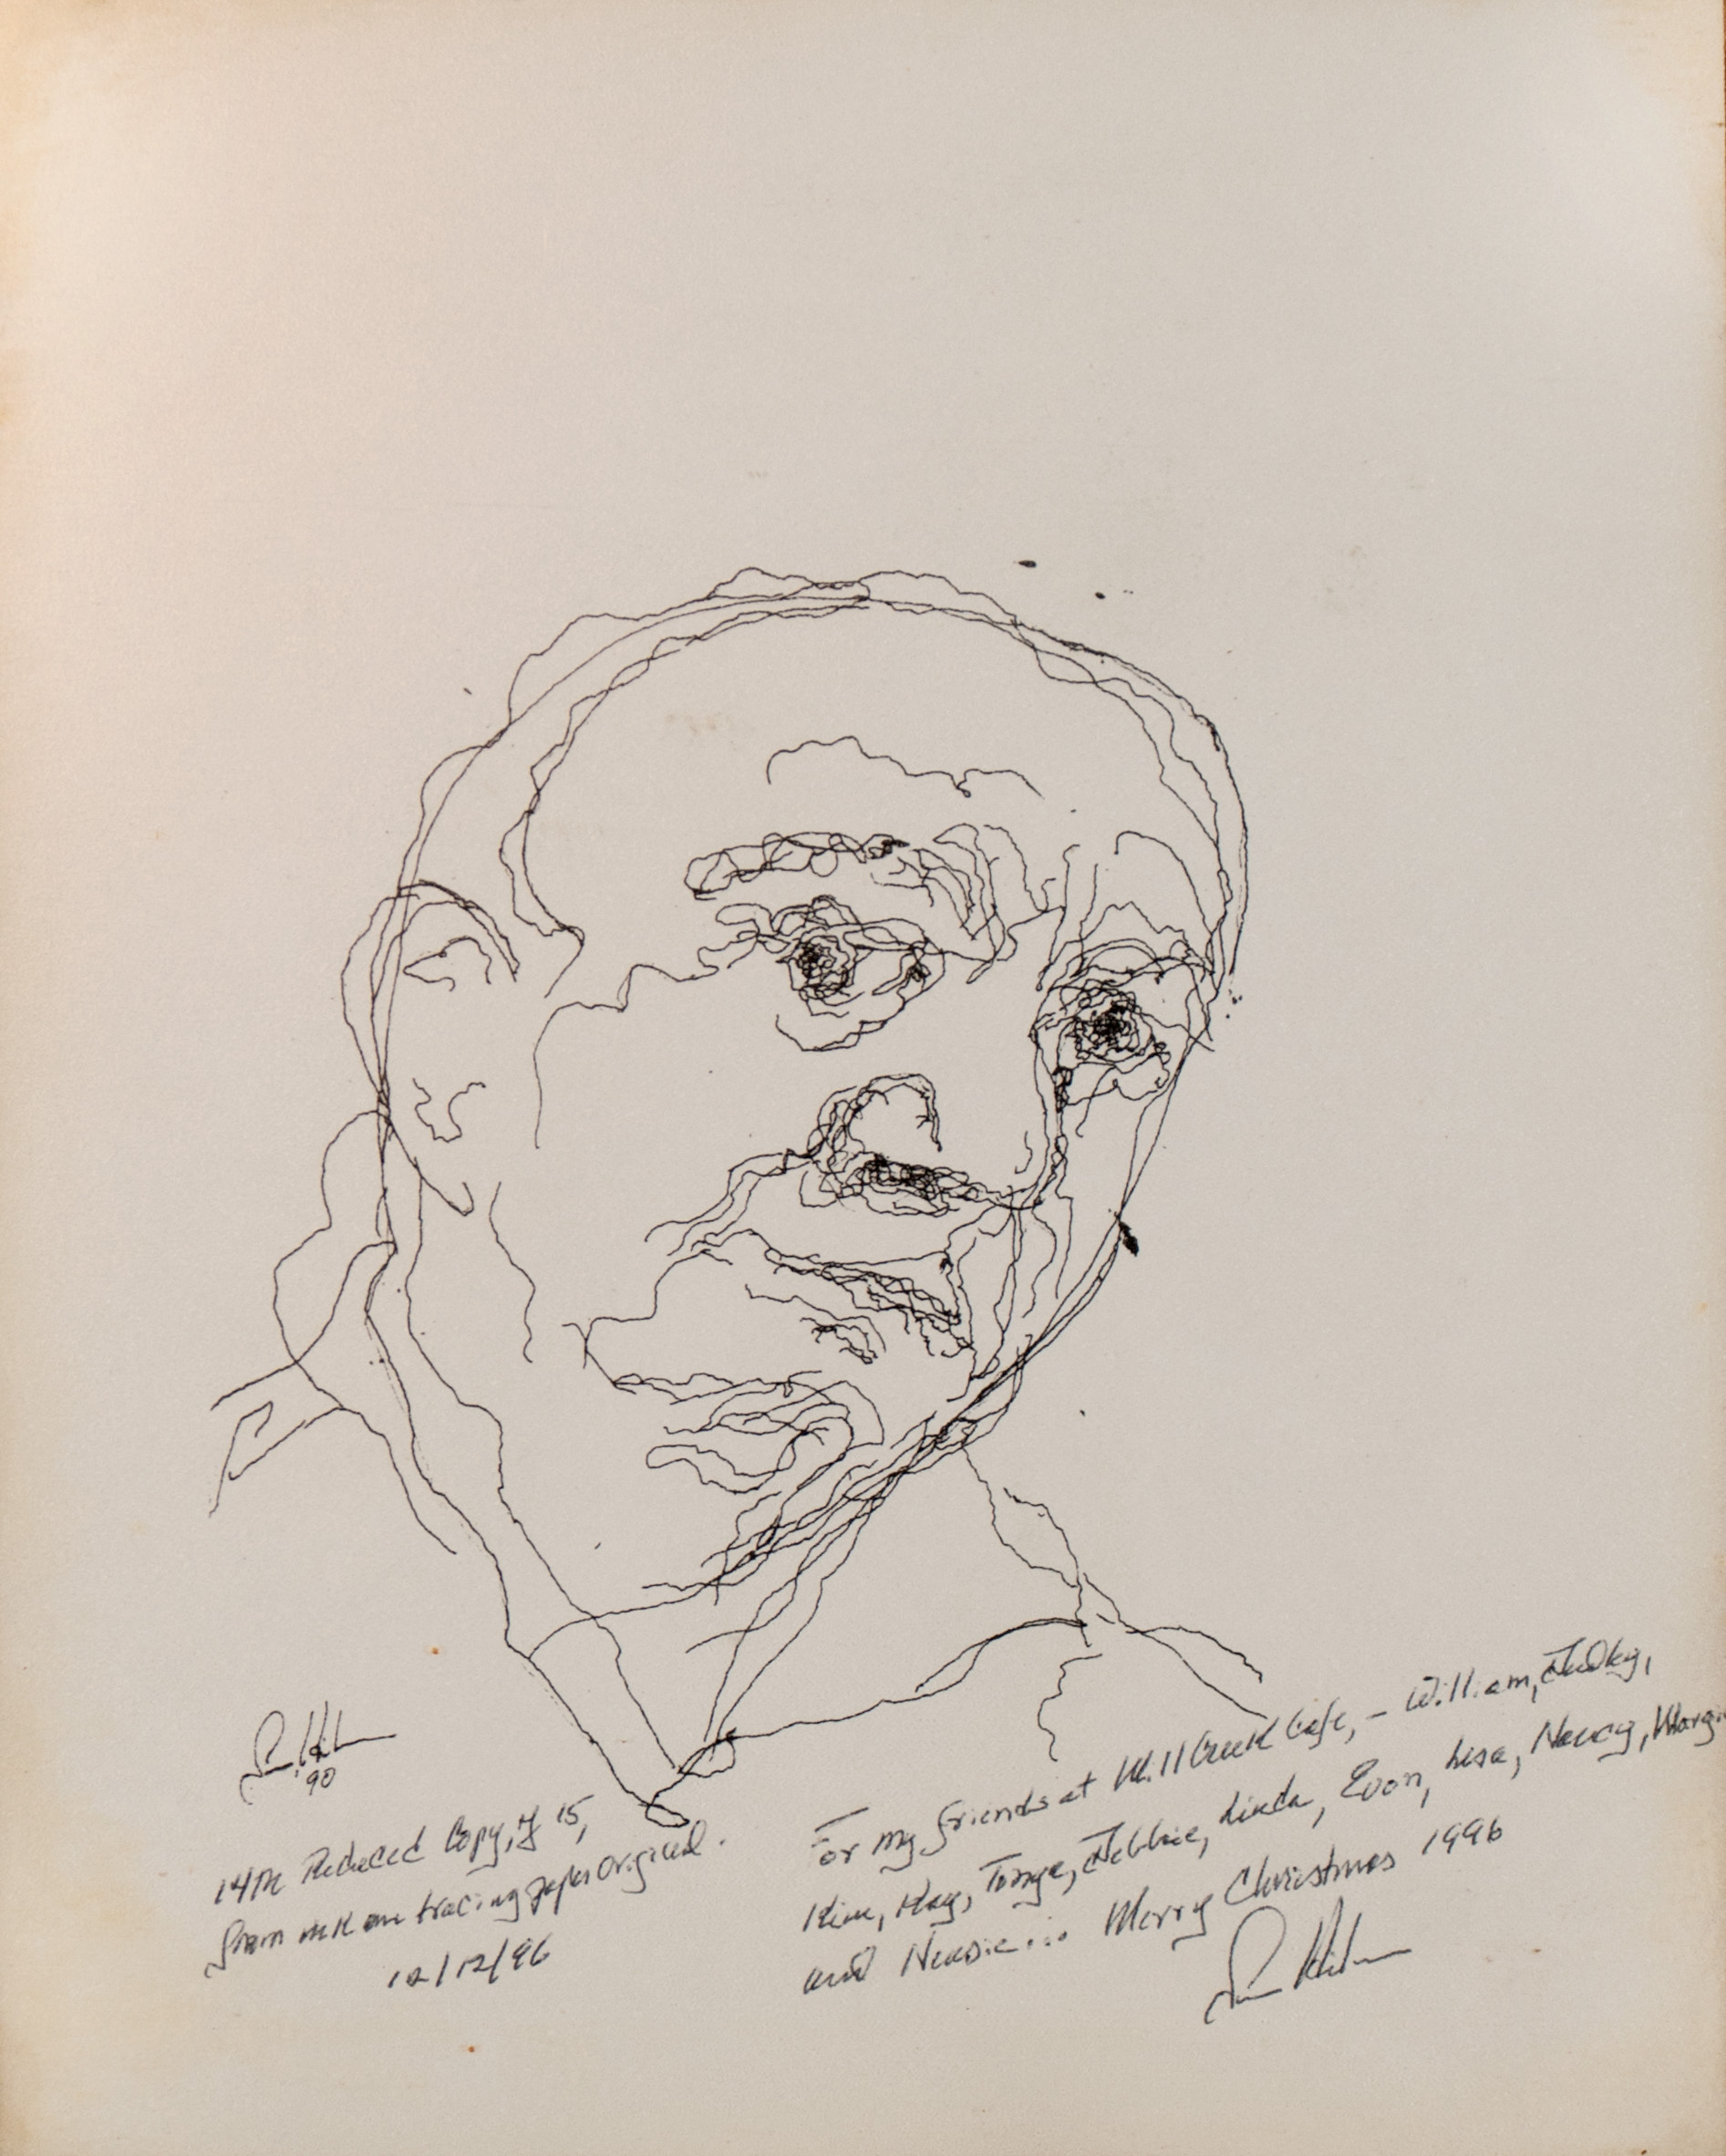 90
14th Reduced Copy, of 15,
from ink on tracing paper original.
12/12/96
For my friends at Mill Creek Cafe, – William, Judky,
Kim, Kay, Tonye, Debbie, Linda, Evon, Lisa, Nancy, Margi
and Neasie... Merry Christmas 1996